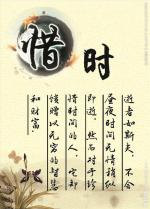 惜时
逝者如斯夫，不舍
昼夜时间无情稍纵
即逝，然而对于珍
惜时间的人，它却
馈赠以无穷的智慧
和财富